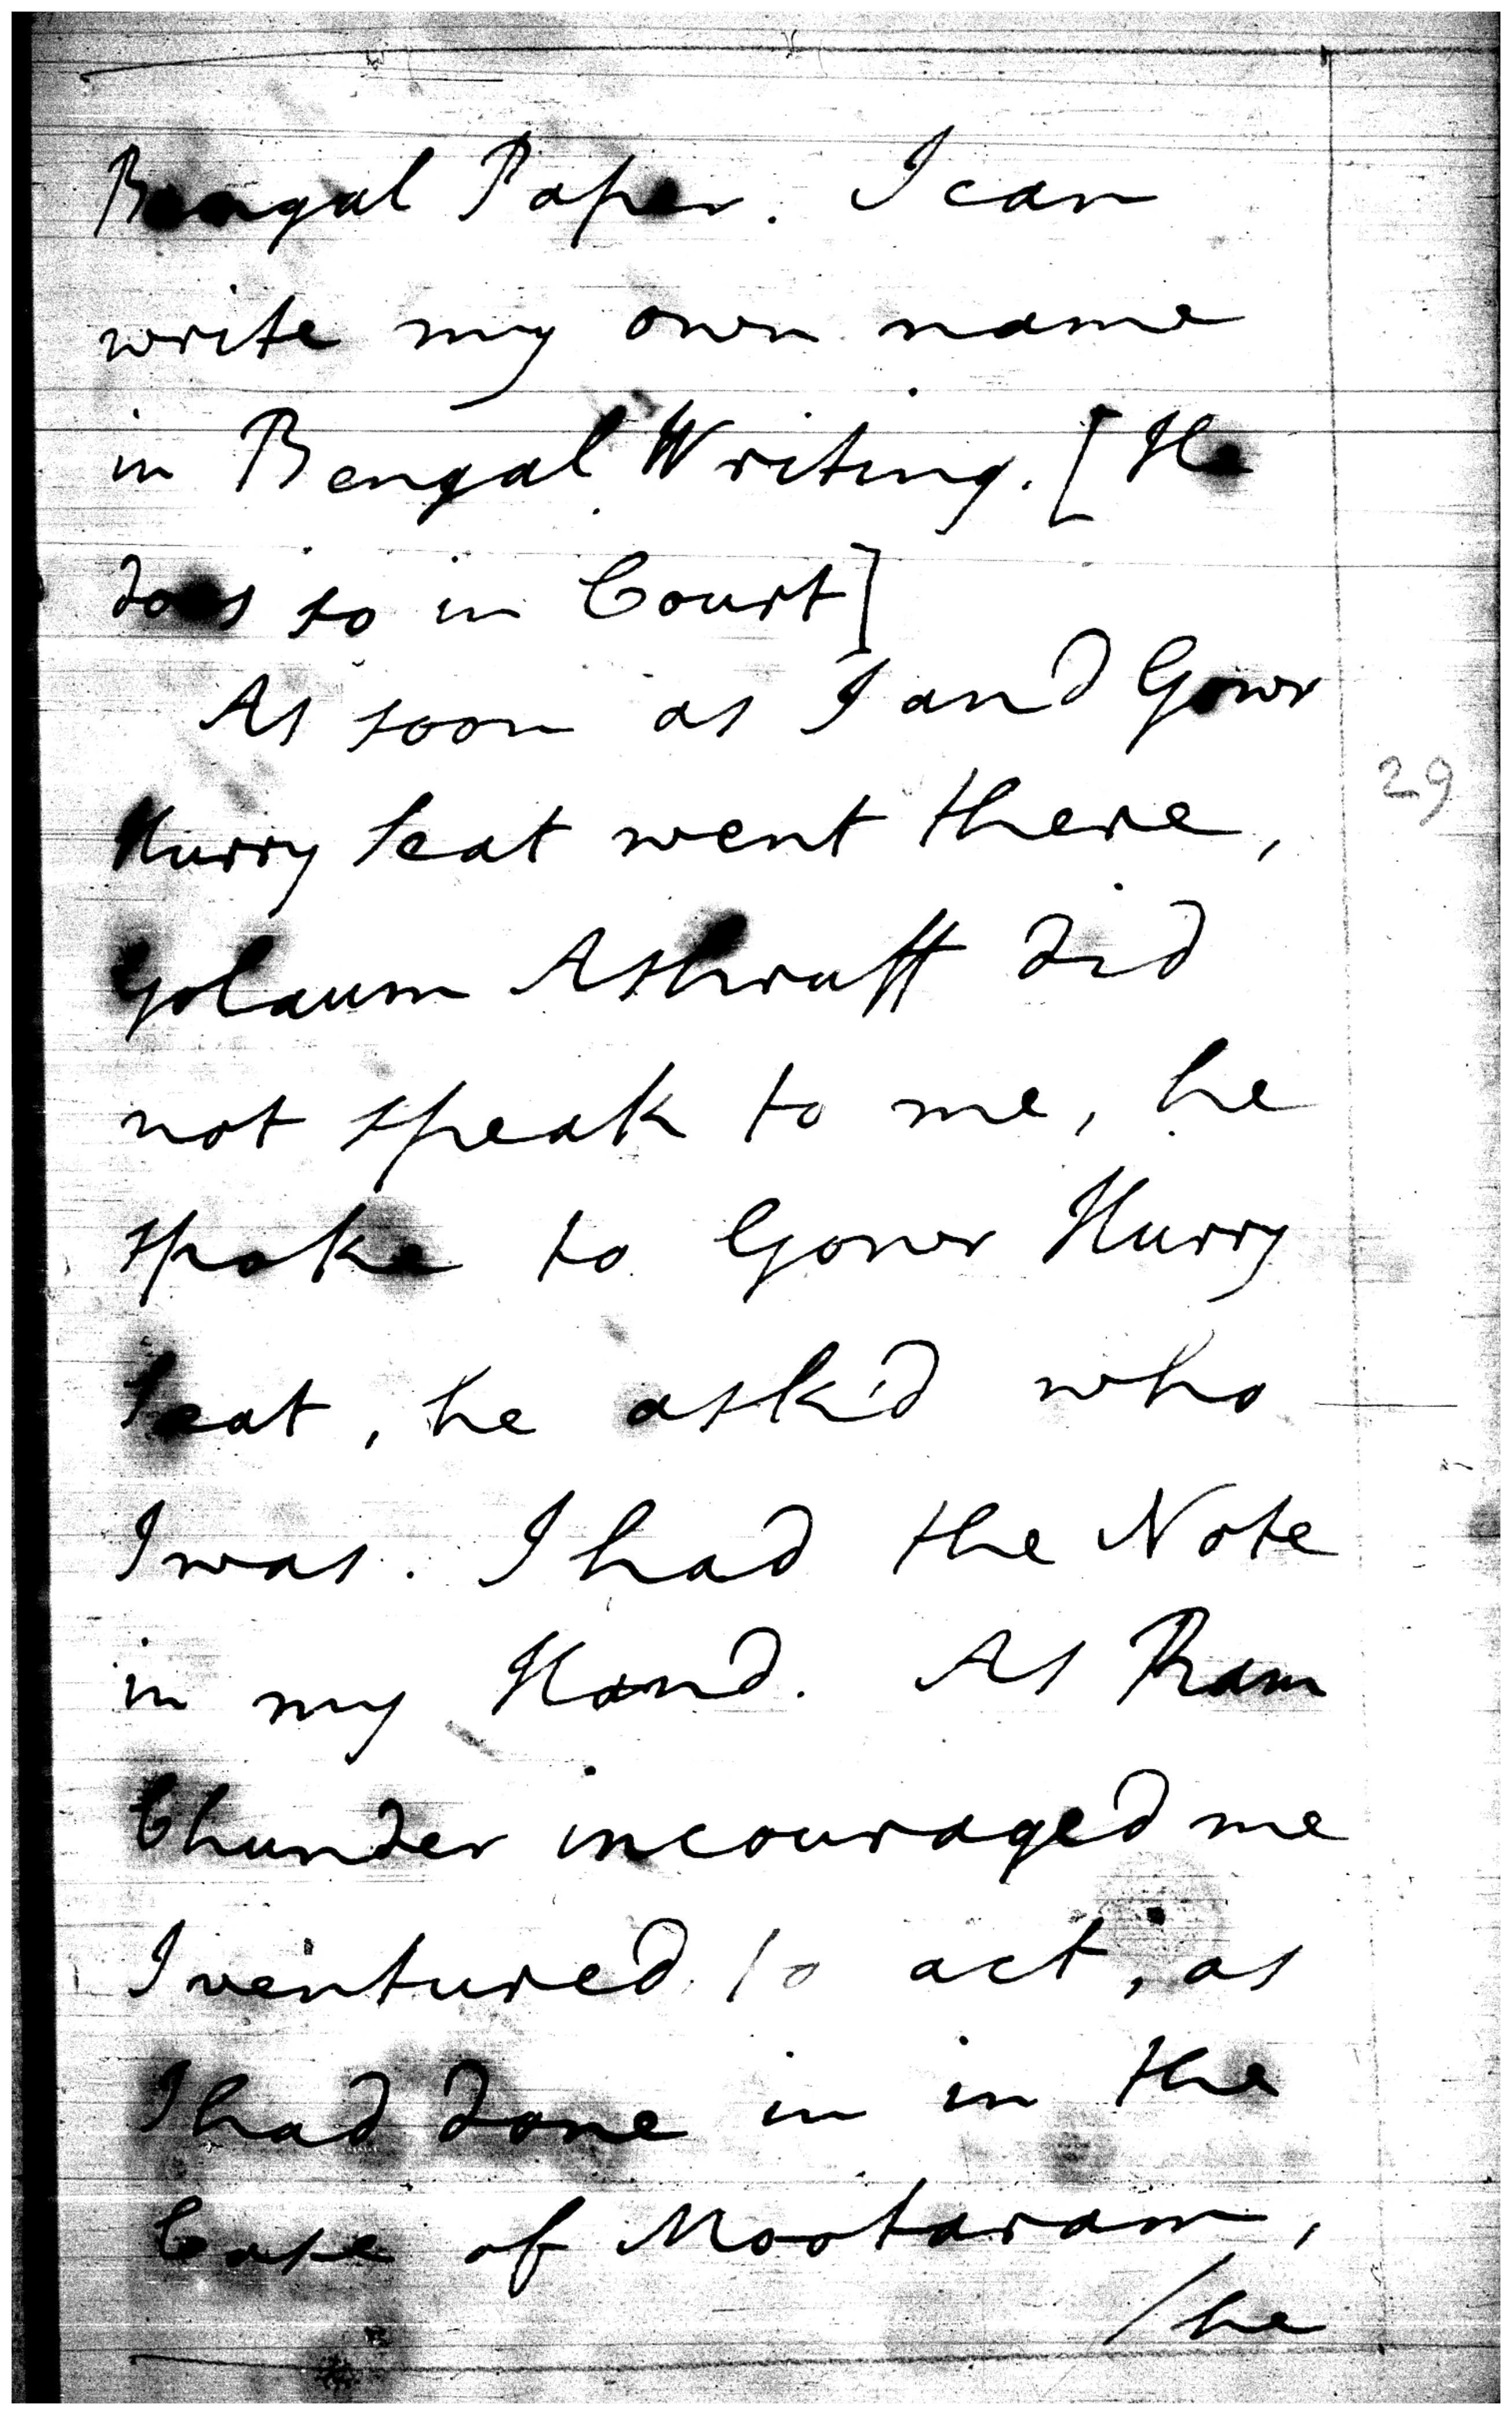 Bengal Paper. I can
write my own name
in Bengal Writing. [He
does so in Court]
As soon as I and Gowr
Hurry Seat went there,
29
Golaum Ashruff did
not speak to me, he
spoke to Gowr Hurry
Seat, he ask'd who
I was. I had the Note
in my Hand. As Ram
Chunder incouraged me
I ventured to act, as
I had done in in the
Case of Mootaram,
/he